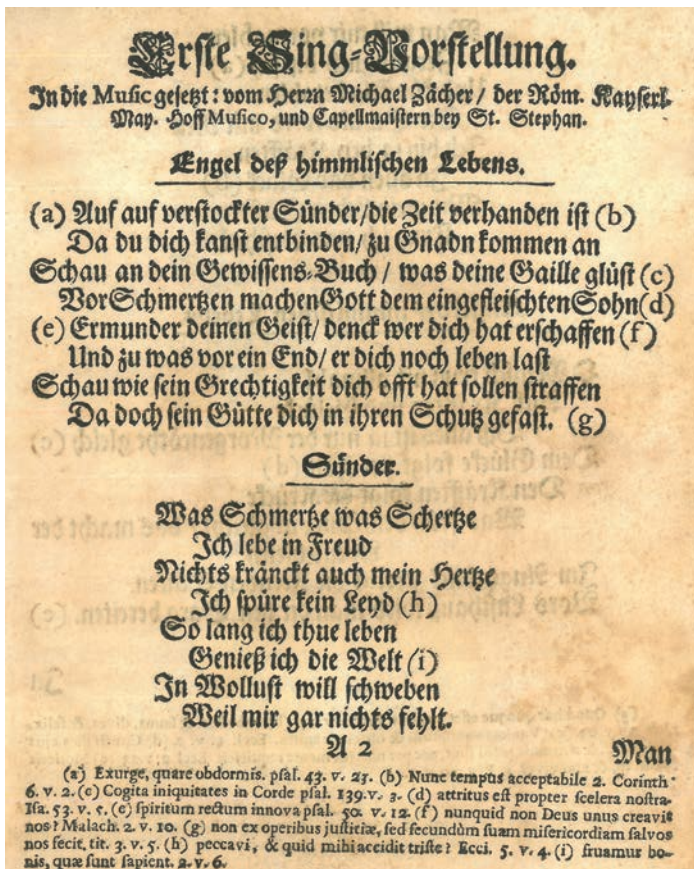 Erste Sing-Vorstellung.
In die Music gesetzt: vom Herrn Michael Zächer / der Röm. Kayserl.
May. Hoff Musico, und Capellmaistern bey St. Stephan.
Engel deß himmlischen Lebens.
(a) Auf auf verstockter Sünder/die Zeit verhanden ist (b)
Da du dich kanst entbinden/ zu Gnadn kommen an
Schau an dein Gewissens-Buch / was deine Gaille glüst (c)
Vor Schmertzen machen Gott dem eingefleischten Sohn(d)
(e) Ermunder deinen Geist/ denck wer dich hat erschaffen (f)
Und zu was vor ein End/ er dich noch leben last
Schau wie sein Grechtigkeit dich offt hat sollen straffen
Da doch sein Gütte dich in ihren Schutz gefast. (g)
Sünder.
Was Schmertze was Schertze
Ich lebe in Freud
Nichts kränckt auch mein Hertze
Ich spüre kein Leyd (h)
So lang ich thue leben
Genieß ich die Welt (i)
In Wollust will schweben
Weil mir gar nichts fehlt.
A 2 Man
(a) Exurge, quare obdormis. psal. 43. v. 23. (b) Nunc tempus acceptabile 2. Corinth.
6. v. 2. (c) Cogita iniquitates in Corde psal. 139. v. 3. (d) attritus est propter scelera nostra.
Isa. 53. v. 5. (e) spiritum rectum innova psal. 50. v. 12. (f) nunquid non Deus unus creavit
nos? Malach. 2. v. 10. (g) non ex operibus justitiæ, sed secundùm suam misericordiam salvos
nos fecit. tit. 3. v. 5. (h) peccavi, & quid mihi accidit triste? Eccl. 5. v. 4. (i) fruamur bo-
nis, quæ sunt sapient. 2. v. 6.